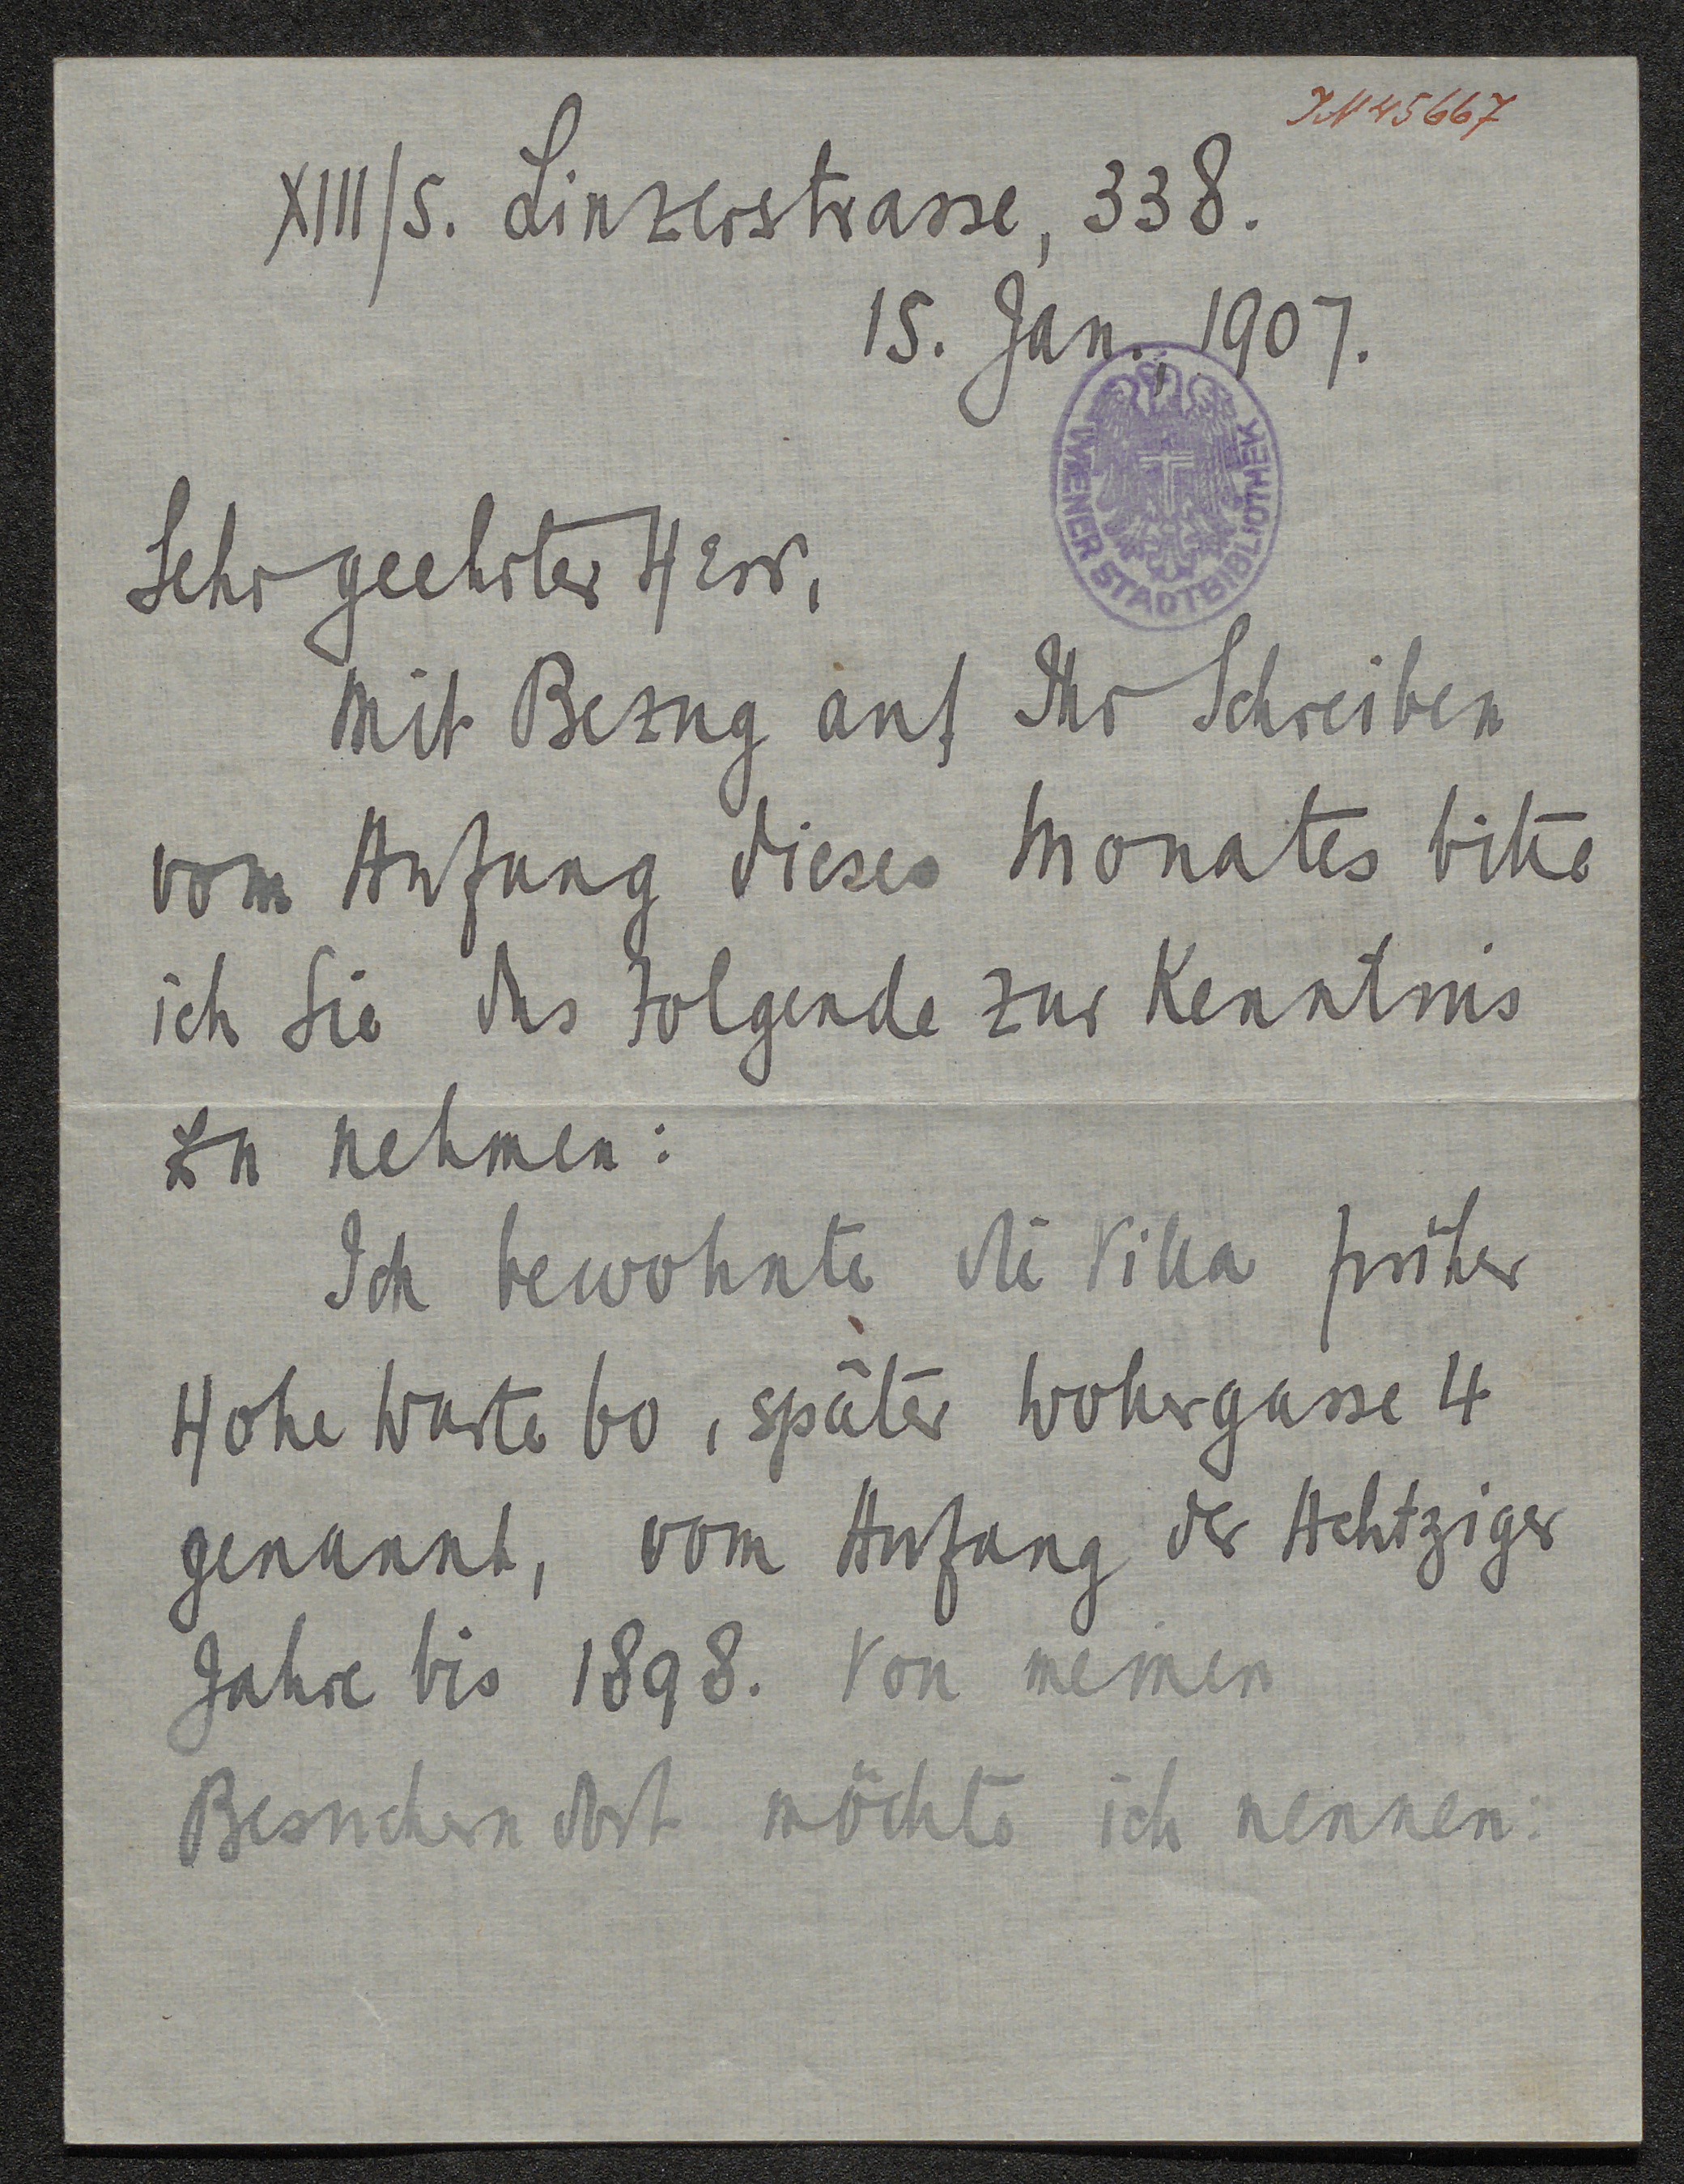 IN 45667
XIII/5. Linzerstrasse, 338.
15. Jan., 1907.
WIENER STADTBIBLIOTHEK
Sehr geehrter Herr,
Mit Bezug auf Ihr Schreiben
vom Anfang dieses Monates bitte
ich Sie das Folgende zur Kenntnis
zu nehmen:
Ich bewohnte die Villa früher
Hohe Warte 60, später Wollergasse 4
genannt, vom Anfang der Achtziger
Jahre bis 1898. Von meinen
Besuchern dort möchte ich nennen: